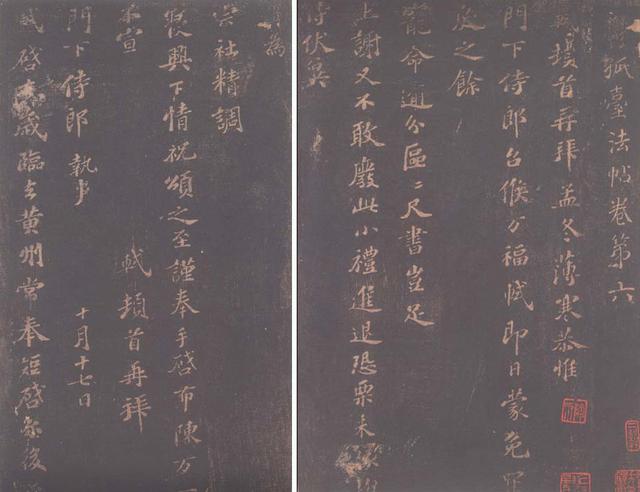 孤臺法帖卷第六
頓首再拜孟冬薄寒恭惟
門下侍郎台候万福軾即日蒙免罪
戾之餘
寵命逾分區〻尺書豈足
上謝又不敢廢此小禮進退恐栗未
侍伏冀
為
宗社精調
寢興下情祝頌之至謹奉手啓布陳万一
不宣
軾頓首再拜
門下侍郎 執事 十月十七日
軾啓去歲臨去黃州常奉短啓爾後